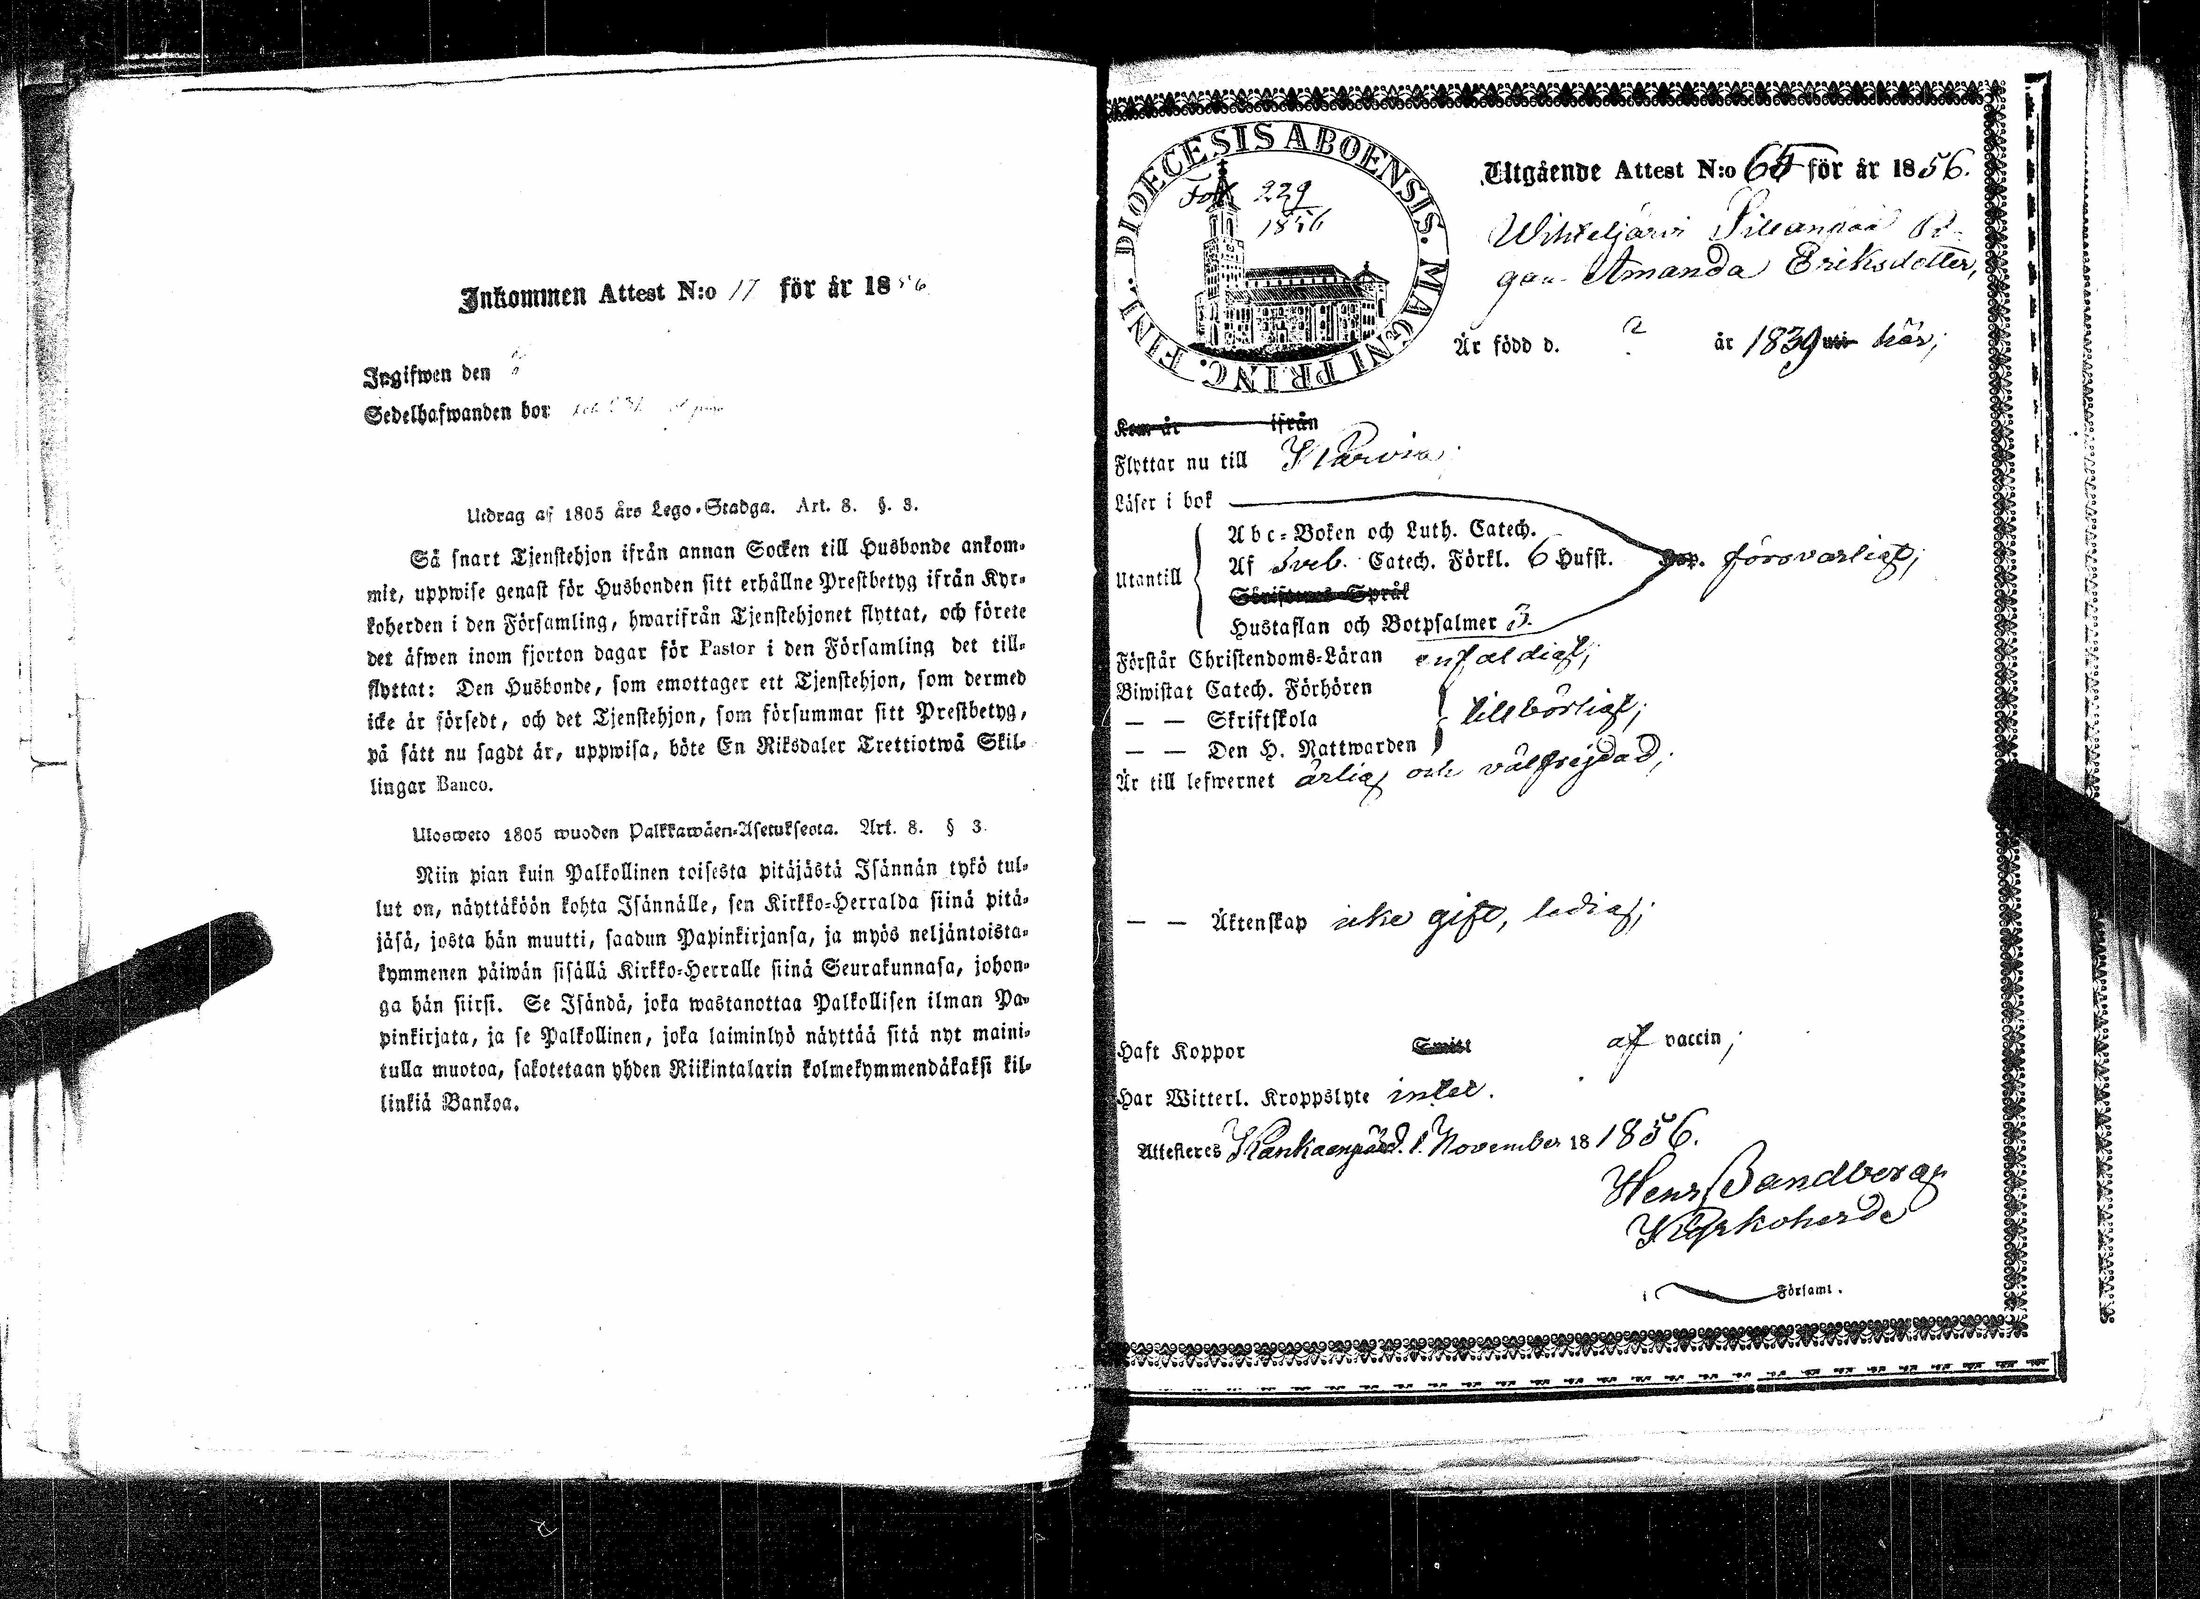 Inkommen Attest N:o 17 för år 1856
Ingifwen den
Sedelhafwanden bor
Utdrag af 1805 års Lego-Stadga. Art. 8. §. 3.
Så snart Tjenstehjon ifrån annan Socken till Husbonde ankom-
mit, uppwise genast för Husbonden sitt erhållne Prestbetyg ifrån Kyr-
koherden i den Församling, hwarifrån Tjenstehjonet flyttat, och förete
det äfwen inom fjorton dagar för Pastor i den Församling det till-
flyttat: Den Husbonde, som emottager ett Tjenstehjon, som dermed
icke är försedt, och det Tjenstehjon, som försummar sitt Prestbetyg,
på sätt nu sagdt är, uppwisa, böte En Riksdaler Trettiotwå Skil-
lingar Banco.
Ulosweto 1805 wuoden Palkkawäen-Asetuksesta. Art. 8. § 3.
Niin pian kuin Palkollinen toisesta pitäjästä Isännän tykö tul-
lut on, näyttäköön kohta Isännälle, sen Kirkko-Herralda siinä pitä-
jäsä, josta hän muutti, saadun Papinkirjansa, ja myös neljäntoista-
kymmenen päiwän sisällä Kirkko-Herralle siinä Seurakunnasa, johon-
ga hän siirsi. Se Isändä, joka wastanottaa Palkollisen ilman Pa-
pinkirjata, ja se Palkollinen, joka laiminlyö näyttää sitä nyt maini-
tulla muotoa, sakotetaan yhden Riikintalarin kolmekymmendäkaksi kil-
linkiä Bankoa.
DIOECESIS ABOENSIS. MAGNI PRINC. FINL.
Fol 229
1856
Utgående Attest N:o 65 för år 1856.
Wihteljärvi Sillanpää Pi-
gan Amanda Eriksdotter,
Är född d. ? år 1839 uti här;
Kom år ifrån
Flyttar nu till Karvia;
Läser i bok
Abc-Boken och Luth. Catech.
Utantill Af Sveb. Catech. Förkl. 6 Hufst. försvarligt;
Skriftenes Språk
Hustaflan och Botpsalmer 3.
Förstår Christendoms-Läran enfaldigt;
Biwistat Catech. Förhören
— — Skriftskola tillbörligt;
— — Den H. Nattwarden
Är till lefwernet ärlig och välfrejdad;
— — Äktenskap icke gift, ledig;
Haft Koppor Smitt af vaccin;
Har Witterl. Kroppslyte intet.
Attesteres Kankaanpää d. 1. November 18 1856.
Henr Sandberg
Kyrkoherde
i Församl.